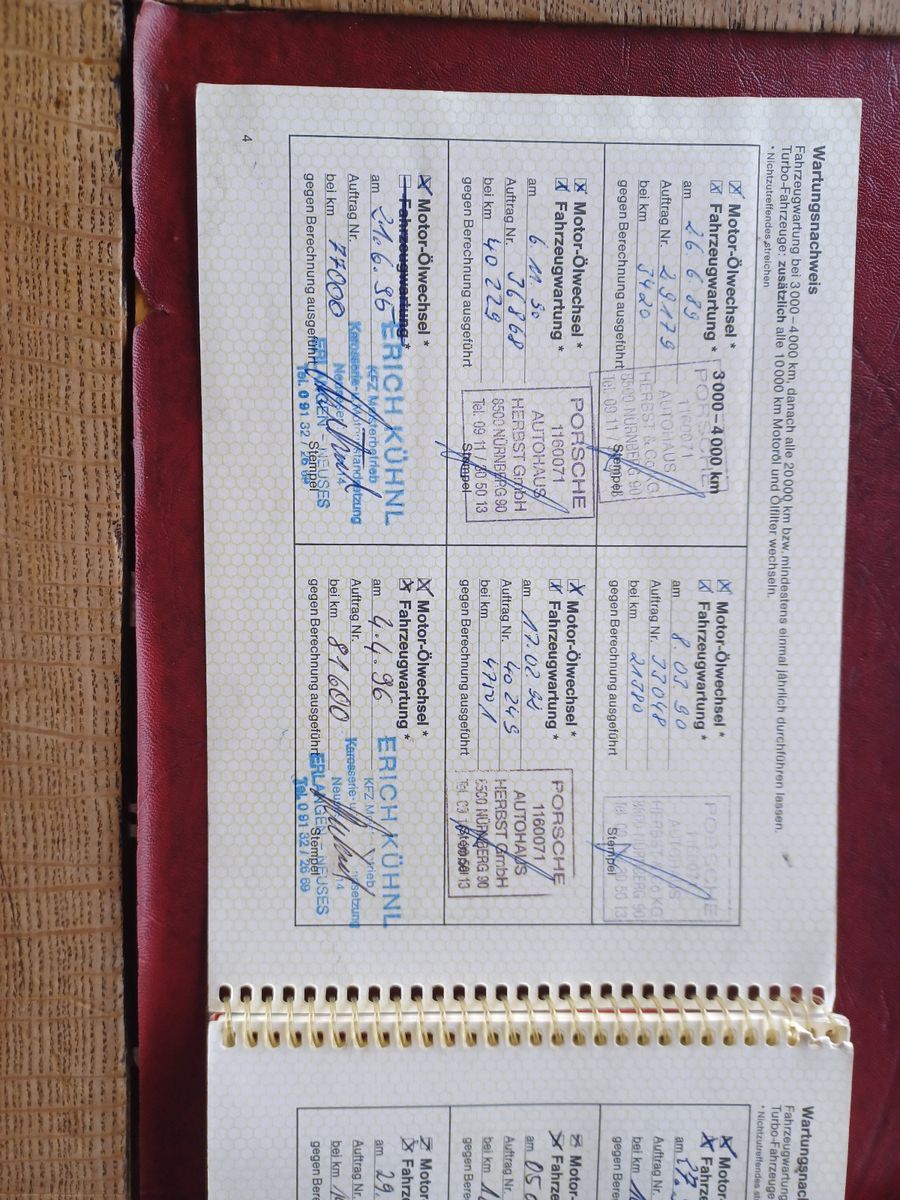 Wartungsnachweis
Fahrzeugwartung bei 3 000 – 4 000 km, danach alle 20 000 km bzw. mindestens einmal jährlich durchführen lassen.
Turbo-Fahrzeuge: zusätzlich alle 10 000 km Motoröl und Ölfilter wechseln.
* Nichtzutreffendes streichen
Motor-Ölwechsel *
Fahrzeugwartung * 3 000 – 4 000 km
am 26 6 89
Auftrag Nr. 29179
bei km 3420
gegen Berechnung ausgeführt
Stempel
PORSCHE
1160071
AUTOHAUS
HERBST & CO KG
8500 NÜRNBERG 90
Tel. 09 11
Motor-Ölwechsel *
Fahrzeugwartung *
am 8. 03 90
Auftrag Nr. 33048
bei km 21380
gegen Berechnung ausgeführt
Stempel
PORSCHE
AUTOHAUS
Motor-Ölwechsel *
Fahrzeugwartung *
am 6 11. 90
Auftrag Nr. 36868
bei km 40229
gegen Berechnung ausgeführt
Stempel
PORSCHE
1160071
AUTOHAUS
HERBST GmbH
8500 NÜRNBERG 90
Tel. 09 11 / 30 50 13
Motor-Ölwechsel *
Fahrzeugwartung *
am 17.02 92
Auftrag Nr. 40249
bei km 47101
gegen Berechnung ausgeführt
Stempel
PORSCHE
1160071
AUTOHAUS
HERBST GmbH
8500 NÜRNBERG 90
Motor-Ölwechsel *
Fahrzeugwartung *
am 21.6.95
Auftrag Nr.
bei km 77000
gegen Berechnung ausgeführt
Stempel
ERICH KÜHNL
KFZ Meisterbetrieb
Karosserie- u. Motorinstandsetzung
ERLANGEN – NEUSES
Tel. 0 91 32 / 26 69
Motor-Ölwechsel *
Fahrzeugwartung *
am 4.4.96
Auftrag Nr.
bei km 81600
gegen Berechnung ausgeführt
Stempel
ERICH KÜHNL
ERLANGEN – NEUSES
Tel. 0 91 32 / 26 69
4
Wartungsnac
Fahrzeugwartung
Turbo-Fahrzeuge:
* Nichtzutreffendes
Motor-
Fahrze
am
Auftrag Nr.
bei km
gegen Ber
Motor-Ö
Fahrze
am 05
Auftrag Nr.
bei km
gegen Bere
Motor
Fahrz
am 29.
Auftrag Nr.
bei km
gegen Ber